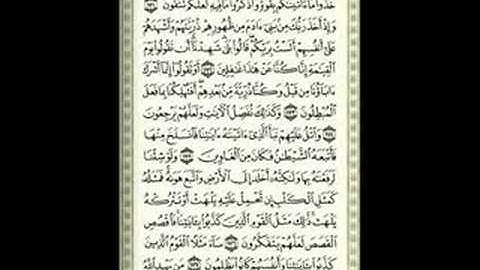 خُذُوا۟ مَآ ءَاتَيْنَٰكُم بِقُوَّةٍ وَٱذْكُرُوا۟ مَا فِيهِ لَعَلَّكُمْ تَتَّقُونَ ١٧١
وَإِذْ أَخَذَ رَبُّكَ مِنۢ بَنِىٓ ءَادَمَ مِن ظُهُورِهِمْ ذُرِّيَّتَهُمْ وَأَشْهَدَهُمْ
عَلَىٰٓ أَنفُسِهِمْ أَلَسْتُ بِرَبِّكُمْ قَالُوا۟ بَلَىٰ شَهِدْنَآ أَن تَقُولُوا۟ يَوْمَ
ٱلْقِيَٰمَةِ إِنَّا كُنَّا عَنْ هَٰذَا غَٰفِلِينَ ١٧٢ أَوْ تَقُولُوٓا۟ إِنَّمَآ أَشْرَكَ
ءَابَآؤُنَا مِن قَبْلُ وَكُنَّا ذُرِّيَّةً مِّنۢ بَعْدِهِمْ أَفَتُهْلِكُنَا بِمَا فَعَلَ
ٱلْمُبْطِلُونَ ١٧٣ وَكَذَٰلِكَ نُفَصِّلُ ٱلْءَايَٰتِ وَلَعَلَّهُمْ يَرْجِعُونَ
١٧٤ وَٱتْلُ عَلَيْهِمْ نَبَأَ ٱلَّذِىٓ ءَاتَيْنَٰهُ ءَايَٰتِنَا فَٱنسَلَخَ مِنْهَا
فَأَتْبَعَهُ ٱلشَّيْطَٰنُ فَكَانَ مِنَ ٱلْغَاوِينَ ١٧٥ وَلَوْ شِئْنَا
لَرَفَعْنَٰهُ بِهَا وَلَٰكِنَّهُۥٓ أَخْلَدَ إِلَى ٱلْأَرْضِ وَٱتَّبَعَ هَوَىٰهُ فَمَثَلُهُۥ
كَمَثَلِ ٱلْكَلْبِ إِن تَحْمِلْ عَلَيْهِ يَلْهَثْ أَوْ تَتْرُكْهُ
يَلْهَث ذَّٰلِكَ مَثَلُ ٱلْقَوْمِ ٱلَّذِينَ كَذَّبُوا۟ بِـَٔايَٰتِنَا فَٱقْصُصِ
ٱلْقَصَصَ لَعَلَّهُمْ يَتَفَكَّرُونَ ١٧٦ سَآءَ مَثَلًا ٱلْقَوْمُ ٱلَّذِينَ
كَذَّبُوا۟ بِـَٔايَٰتِنَا وَأَنفُسَهُمْ كَانُوا۟ يَظْلِمُونَ ١٧٧ مَن يَهْدِ ٱللَّهُ